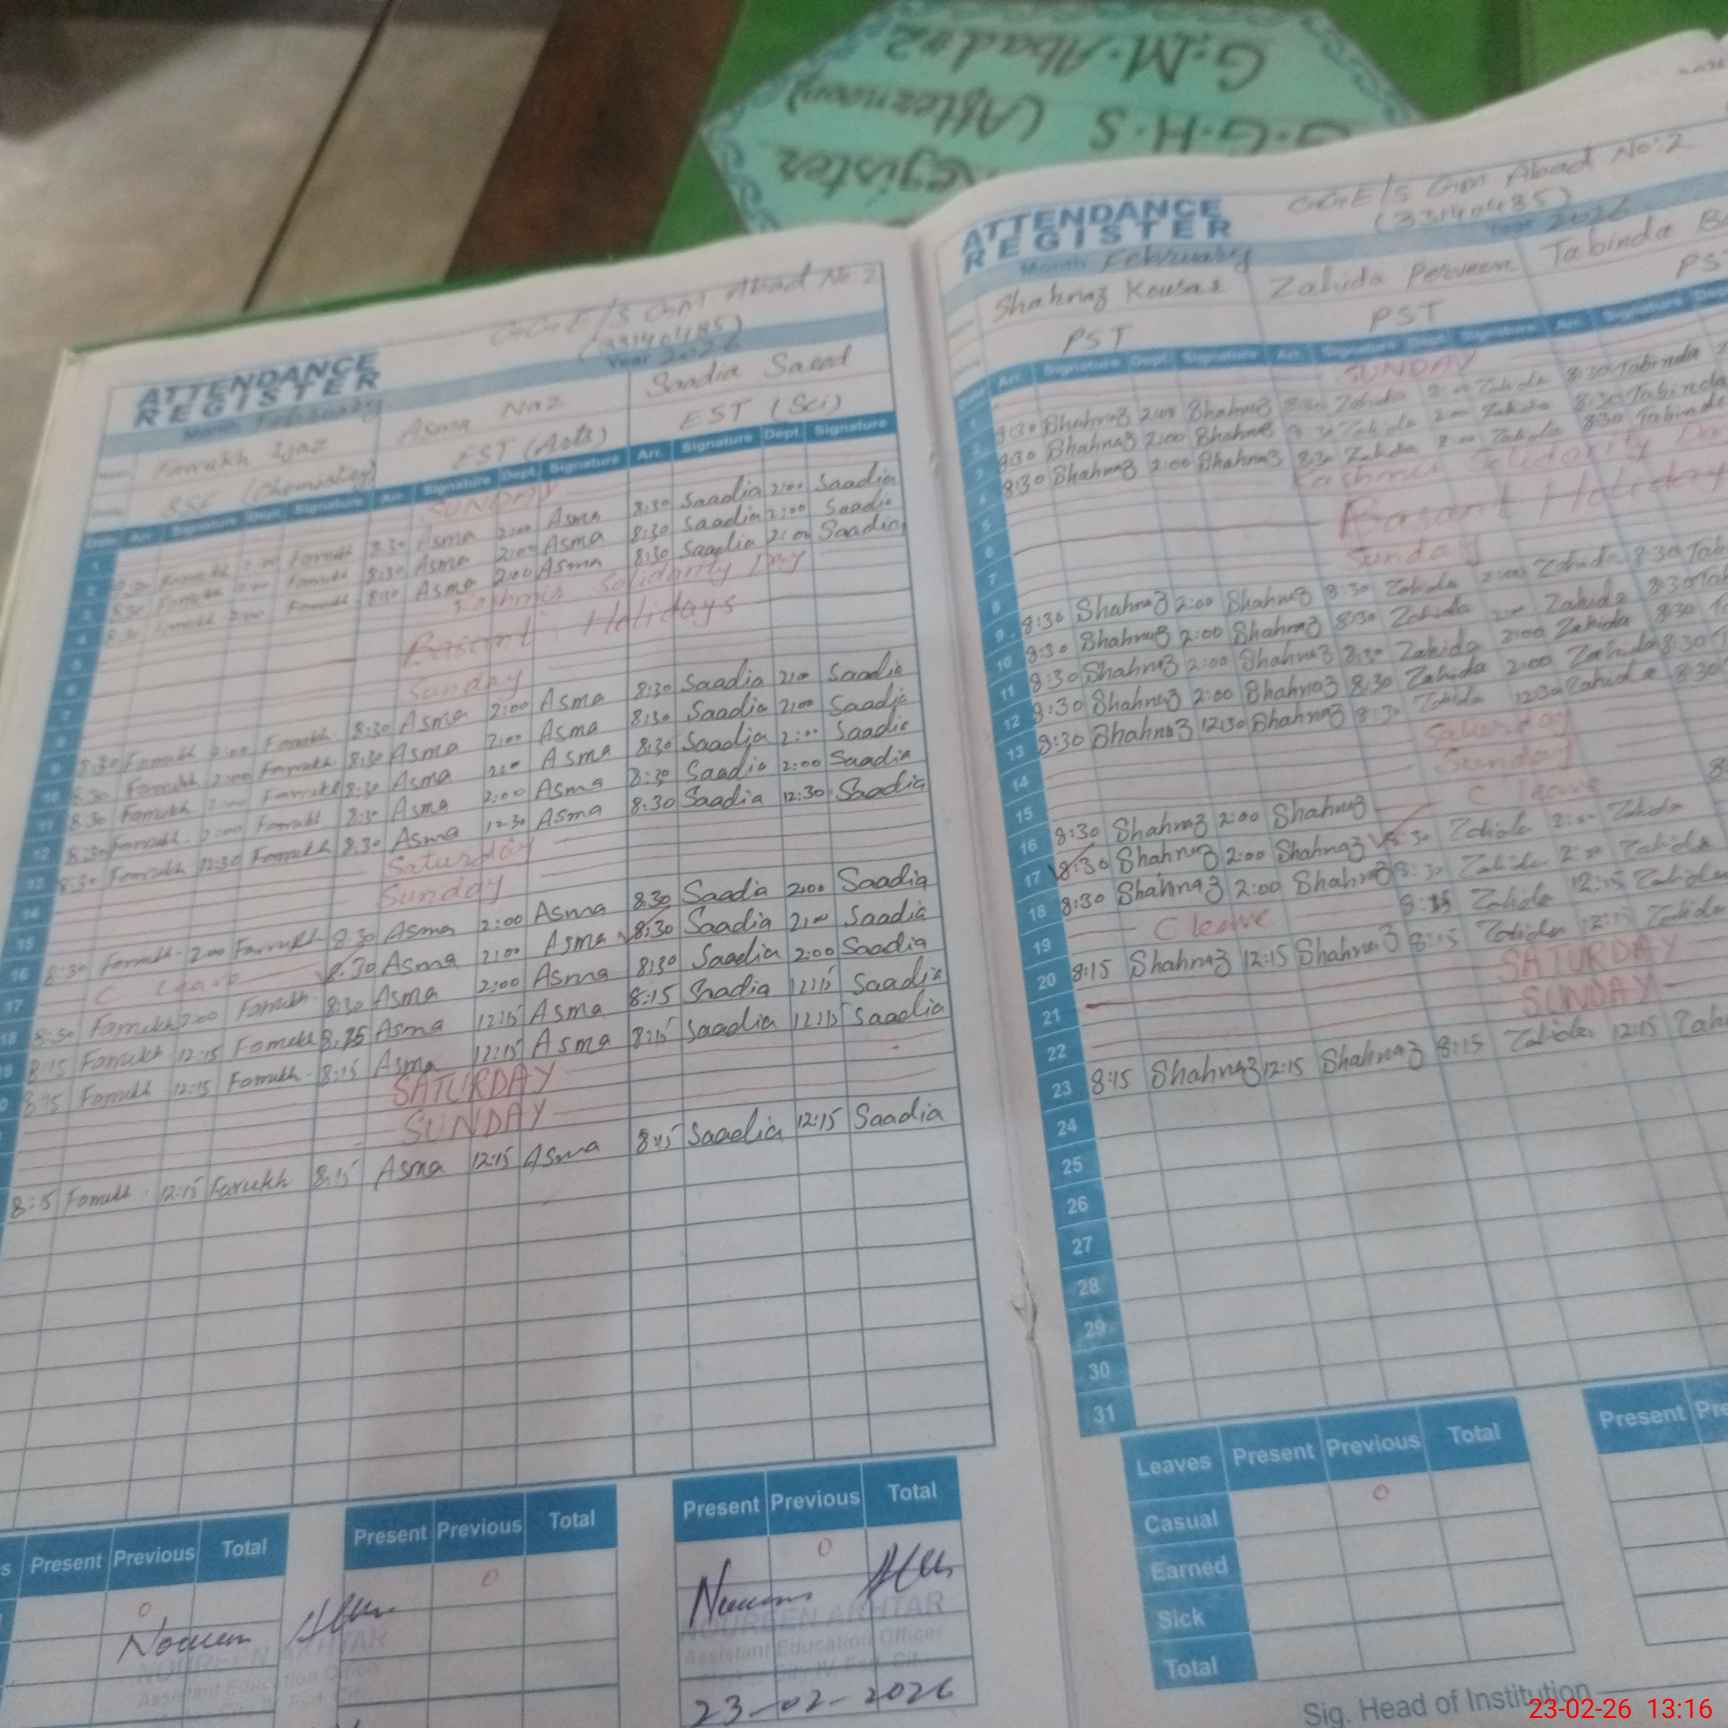 G.M.Abad#2
(Afternoon)
G.G.H.S
Register
ATTENDANCE
REGISTER
GGE/S Gm Abad No:2
(33140485)
Month February
Year 2026
Farrukh Ijaz
Asma Naz
Saadia Saeed
SSE (Chemistry)
EST (Arts)
EST (Sci)
Date Arr. Signature Dept. Signature Arr. Signature Dept. Signature Arr. Signature Dept. Signature
1 SUNDAY
2 8:30 Farrukh 2:00 Farrukh 8:30 Asma 2:00 Asma 8:30 Saadia 2:00 Saadia
3 8:30 Farrukh 2:00 Farrukh 8:30 Asma 2:00 Asma 8:30 Saadia 2:00 Saadia
4 8:30 Farrukh 2:00 Farrukh 8:30 Asma 2:00 Asma 8:30 Saadia 2:00 Saadia
5 Kashmir Solidarity Day
6
7 Basant Holidays
8 Sunday
9 8:30 Farrukh 2:00 Farrukh 8:30 Asma 2:00 Asma 8:30 Saadia 2:00 Saadia
10 8:30 Farrukh 2:00 Farrukh 8:30 Asma 2:00 Asma 8:30 Saadia 2:00 Saadia
11 8:30 Farrukh 2:00 Farrukh 8:30 Asma 2:00 Asma 8:30 Saadia 2:00 Saadia
12 8:30 Farrukh 2:00 Farrukh 8:30 Asma 2:00 Asma 8:30 Saadia 2:00 Saadia
13 8:30 Farrukh 12:30 Farrukh 8:30 Asma 12:30 Asma 8:30 Saadia 12:30 Saadia
14 Saturday
15 Sunday
16 8:30 Farrukh 2:00 Farrukh 8:30 Asma 2:00 Asma 8:30 Saadia 2:00 Saadia
17 C leave 8:30 Asma 2:00 Asma 8:30 Saadia 2:00 Saadia
18 8:30 Farrukh 2:00 Farrukh 8:30 Asma 2:00 Asma 8:30 Saadia 2:00 Saadia
19 8:15 Farrukh 12:15 Farrukh 8:15 Asma 12:15 Asma 8:15 Saadia 12:15 Saadia
8:15 Farrukh 12:15 Farrukh 8:15 Asma 12:15 Asma 8:15 Saadia 12:15 Saadia
SATURDAY
SUNDAY
8:15 Farrukh 12:15 Farrukh 8:15 Asma 12:15 Asma 8:15 Saadia 12:15 Saadia
Present Previous Total
0
Present Previous Total
0
Present Previous Total
0
Noureen Akhtar
NOUREEN AKHTAR
Assistant Education Officer
Noureen Akhtar
NOUREEN AKHTAR
Assistant Education Officer
23-02-2026
ATTENDANCE
REGISTER
GGE/S Gm Abad No:2
(33140485)
Month February
Year 2026
Shahnaz Kousar
Zahida Perveen
Tabinda
PST
PST
PST
Date Arr. Signature Dept. Signature Arr. Signature Dept. Signature Arr. Signature
1 SUNDAY
2 8:30 Shahnaz 2:00 Shahnaz 8:30 Zahida 2:00 Zahida 8:30 Tabinda
3 8:30 Shahnaz 2:00 Shahnaz 8:30 Zahida 2:00 Zahida 8:30 Tabinda
4 8:30 Shahnaz 2:00 Shahnaz 8:30 Zahida 2:00 Zahida 8:30 Tabinda
5 Kashmir Solidarity Day
6
7 Basant Holiday
8 Sunday
9 8:30 Shahnaz 2:00 Shahnaz 8:30 Zahida 2:00 Zahida 8:30
10 8:30 Shahnaz 2:00 Shahnaz 8:30 Zahida 2:00 Zahida 8:30
11 8:30 Shahnaz 2:00 Shahnaz 8:30 Zahida 2:00 Zahida 8:30
12 8:30 Shahnaz 2:00 Shahnaz 8:30 Zahida 2:00 Zahida 8:30
13 8:30 Shahnaz 12:30 Shahnaz 8:30 Zahida 12:30 Zahida 8:30
14 Saturday
15 Sunday
16 8:30 Shahnaz 2:00 Shahnaz C leave
17 8:30 Shahnaz 2:00 Shahnaz 8:30 Zahida 2:00 Zahida
18 8:30 Shahnaz 2:00 Shahnaz 8:30 Zahida 2:00 Zahida
19 C leave 8:15 Zahida 12:15 Zahida
20 8:15 Shahnaz 12:15 Shahnaz 8:15 Zahida 12:15 Zahida
21 SATURDAY
22 SUNDAY
23 8:15 Shahnaz 12:15 Shahnaz 8:15 Zahida 12:15
24
25
26
27
28
29
30
31
Leaves Present Previous Total
Casual 0
Earned
Sick
Total
Present
Sig. Head of Institution
23-02-26 13:16